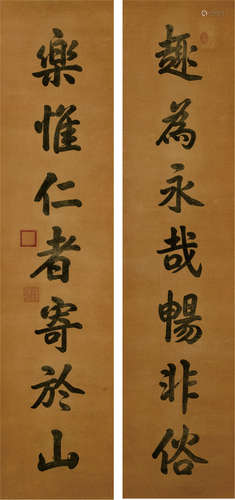 趣為永哉暢非俗
樂惟仁者寄於山